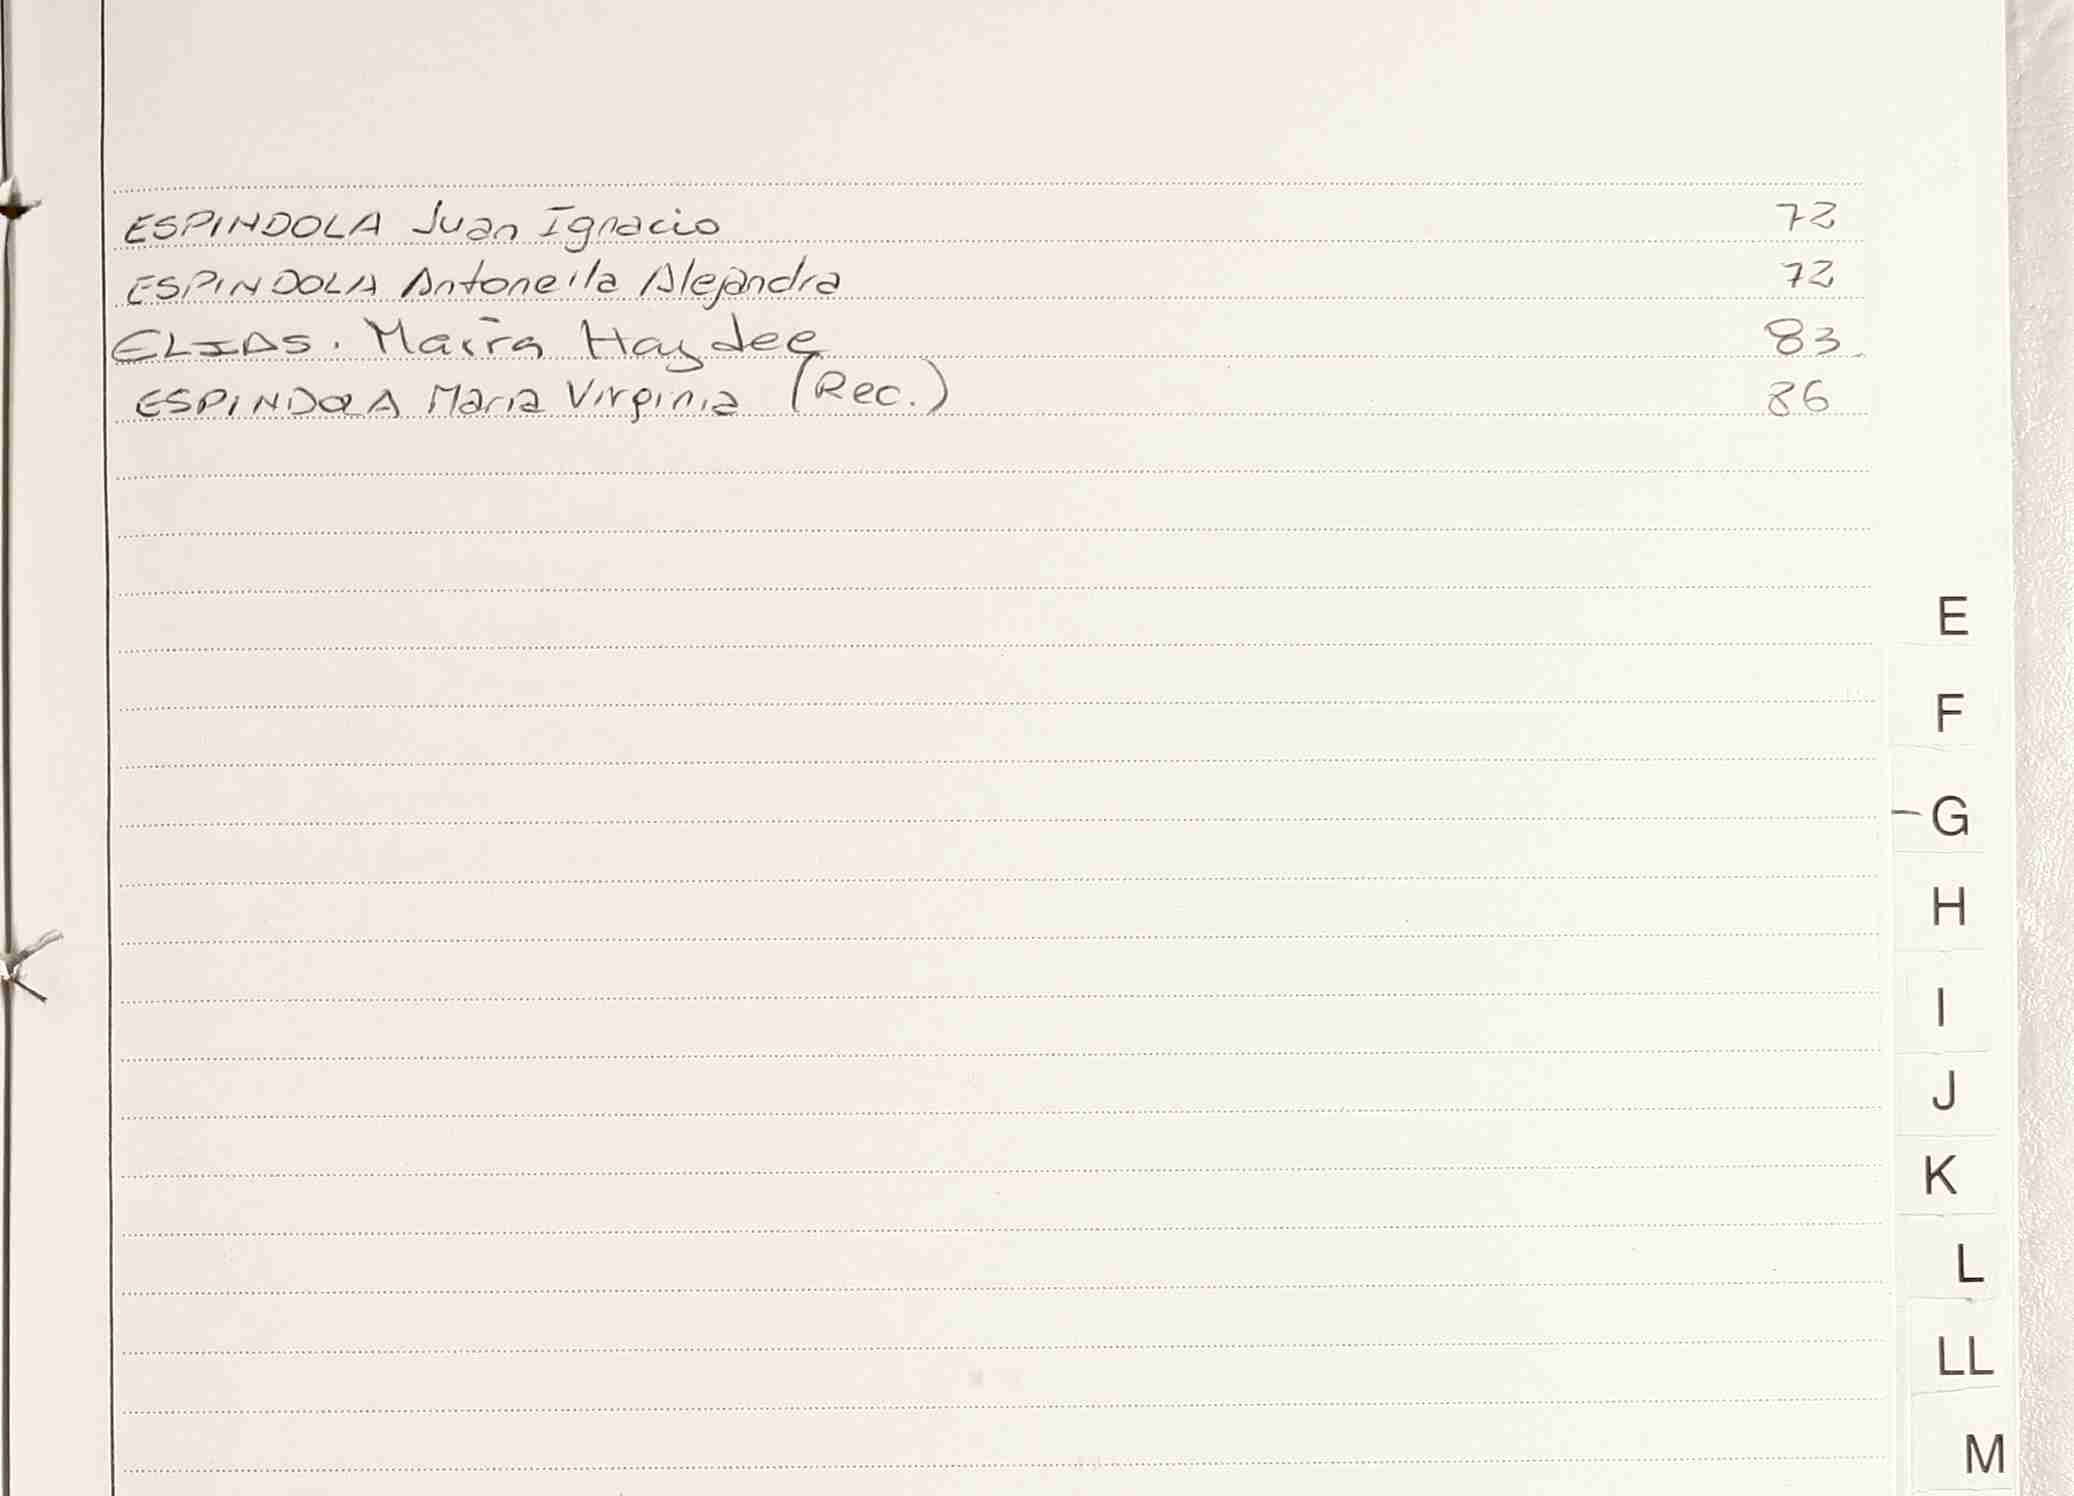 ESPINDOLA Juan Ignacio 72
ESPINDOLA Antonella Alejandra 72
ELIAS. Maira Haydee 83
ESPINDOLA Maria Virginia (Rec.) 86
E
F
G
H
I
J
K
L
LL
M